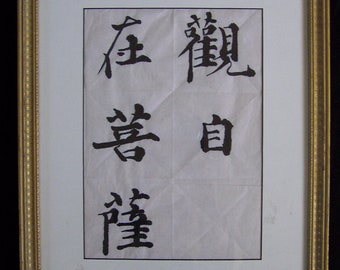 觀自
在菩薩